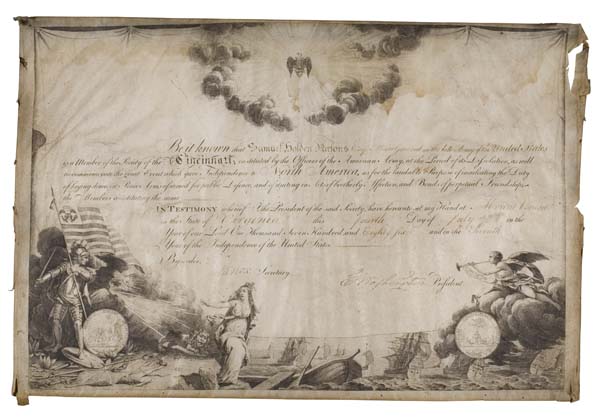 Be it known that Samuel Holden Parsons in the late Army of the United States
is a Member of the Society of the Cincinnati, instituted by the Officers of the American Army, at the Period of its Dissolution, as well
to commemorate the great Event which gave Independence to North America, as for the laudable Purpose of inculcating the Duty
of laying down in Peace Arms assumed for public Defence, and of uniting in Acts of brotherly Affection, and Bonds of perpetual Friendship,
the Members constituting the same.
IN TESTIMONY whereof I, the President of the said Society, have hereunto set my Hand at Mount Vernon
in the State of Virginia this fourth Day of July in the
Year of our Lord One Thousand Seven Hundred and Eighty six and in the Eleventh
Year of the Independence of the United States
By order,
Knox Secretary.
G. Washington President